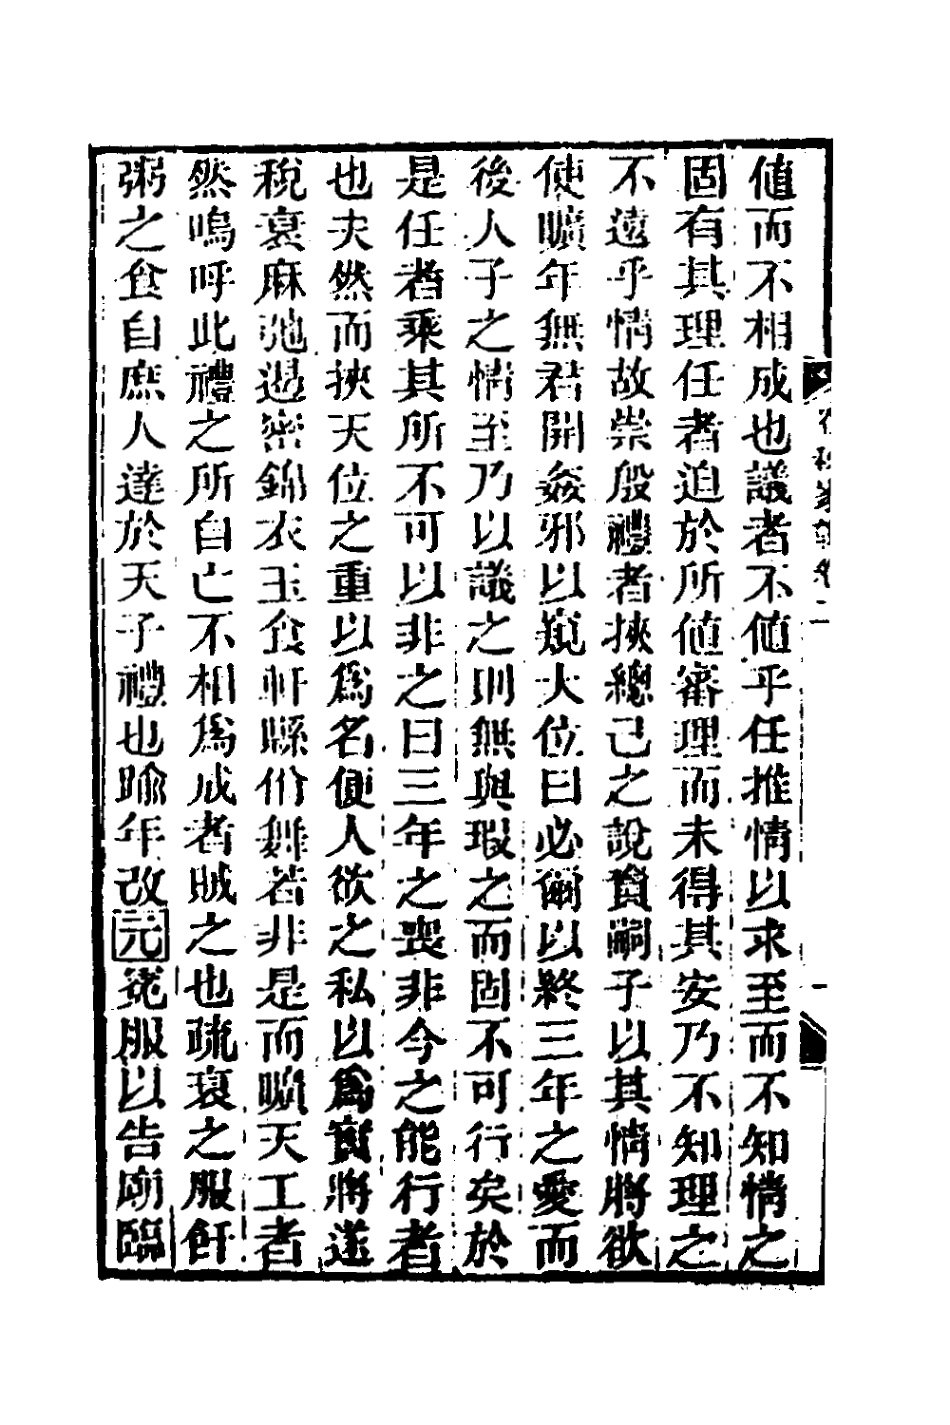 値而不相成也議者不値乎任推情以求至而不知情之
固有其理任者迫於所値審理而未得其安乃不知理之
不遠乎情故崇殷禮者挾總己之說責嗣子以其情將欲
使曠年無君開姦邪以窺大位曰必爾以終三年之愛而
後人子之情至乃以議之則無與瑕之而固不可行矣於
是任者乘其所不可以非之曰三年之喪非今之能行者
也夫然而挾天位之重以爲名便人欲之私以爲實將遂
稅衰麻弛遏密錦衣玉食軒縣佾舞若非是而曠天工者
然嗚呼此禮之所自亡不相爲成者賊之也疏衰之服飦
粥之食自庶人達於天子禮也踰年改元冕服以告廟臨